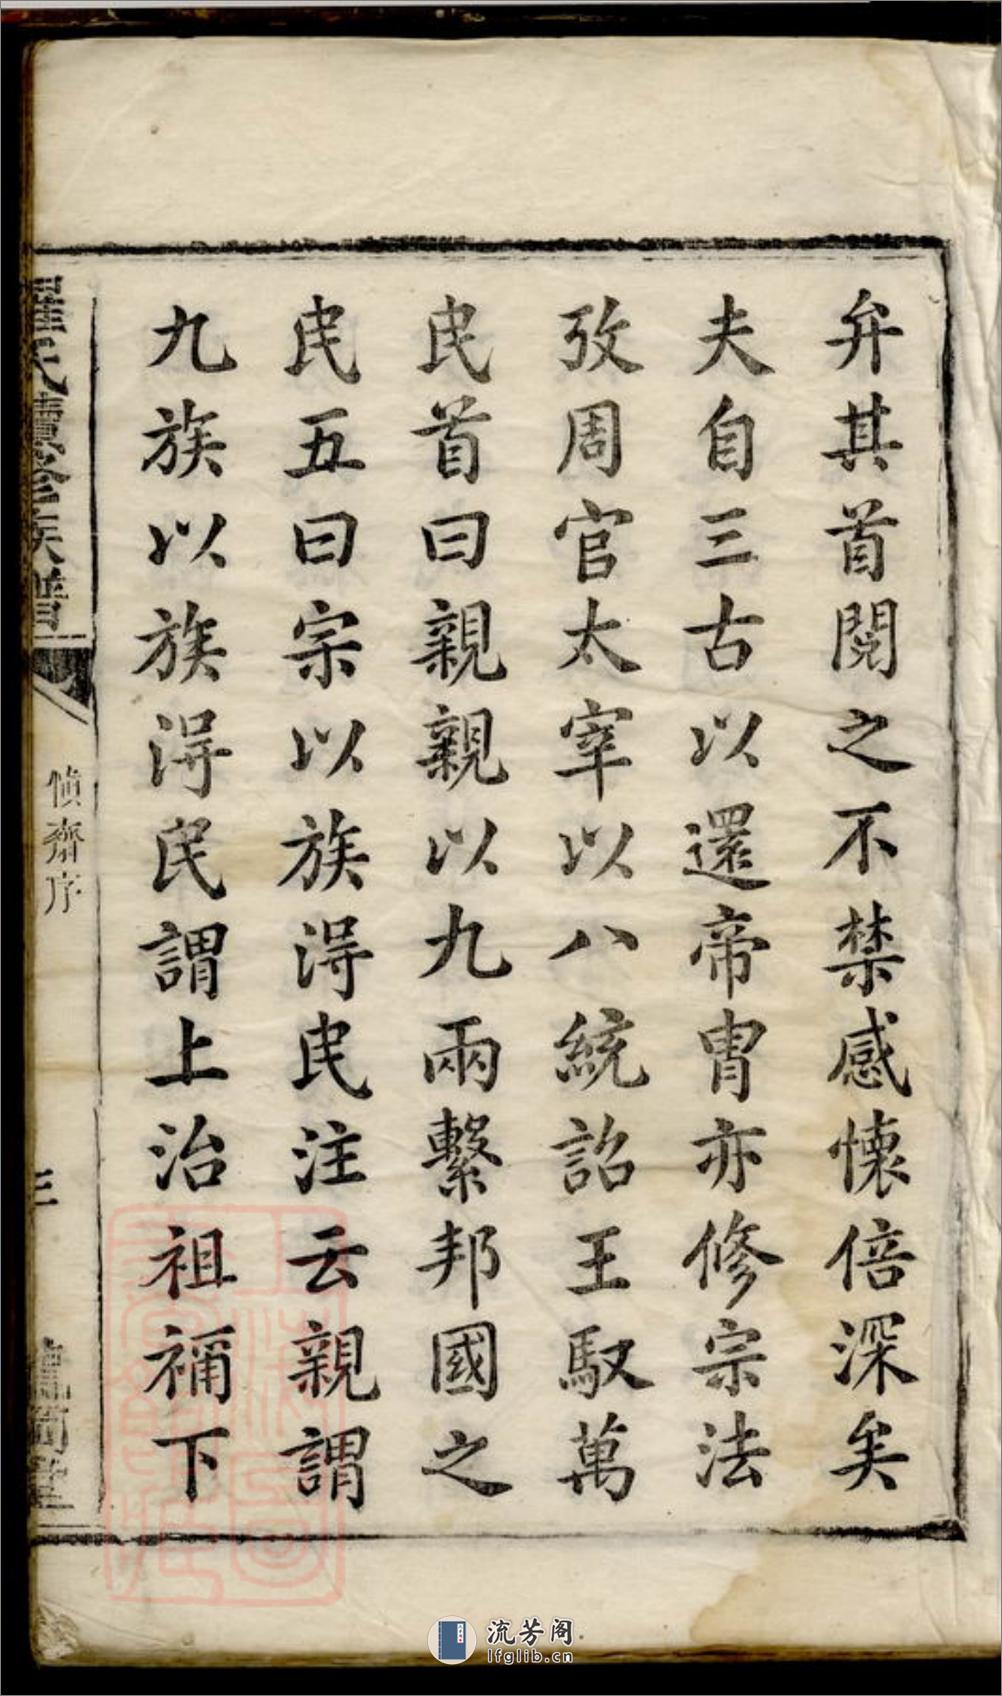 弁其首閱之不禁感懷倍深矣
夫自三古以還帝胄亦修宗法
攷周官太宰以八統詔王馭萬
民首曰親親以九兩繫邦國之
民五曰宗以族淂民注云親謂
九族以族淂民謂上治祖禰下
氏續修族譜
偵齋序
三
流芳阁
lfglib.cn